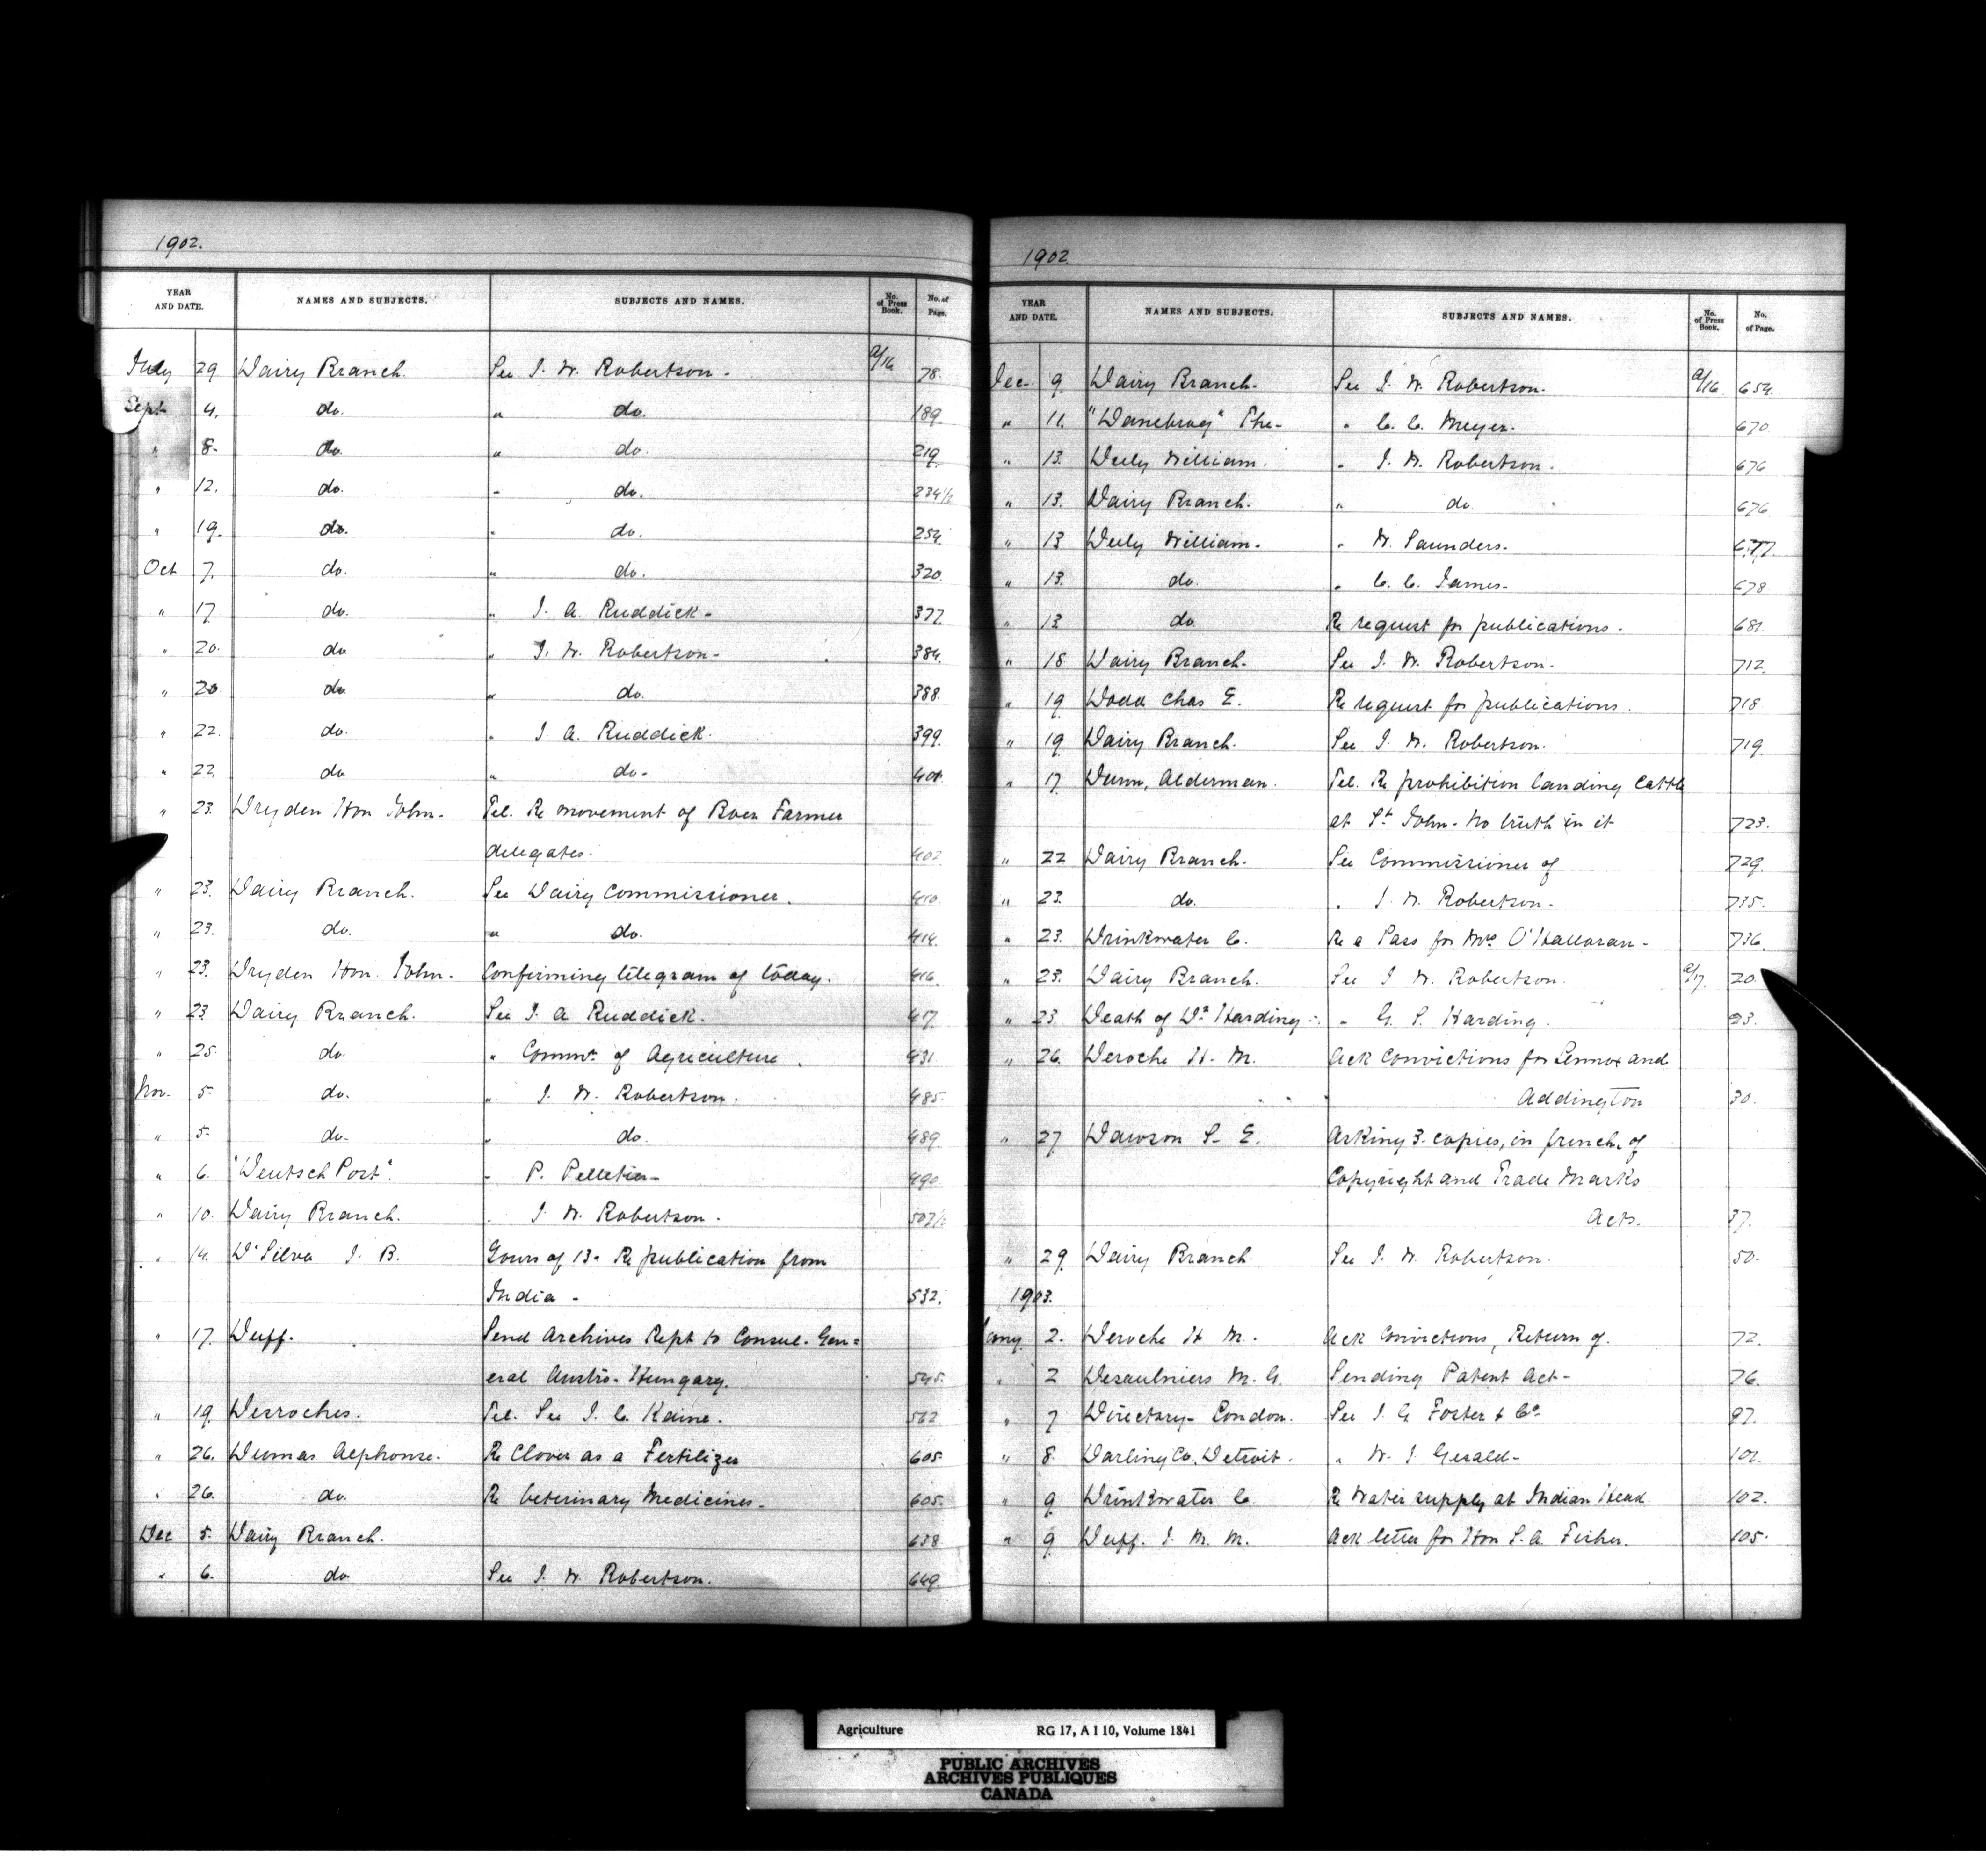 1902.
YEAR AND DATE. NAMES AND SUBJECTS. SUBJECTS AND NAMES. No. of Press Book. No. of Page.
July 29 Dairy Branch. See J. W. Robertson - a/16 78.
Sept 4. do. " do. 189
" 8- do. " do. 219
" 12. do. " do. 234½
" 19. do. " do. 254.
Oct 7. do. " do. 320.
" 17 do. " J. A. Ruddick - 377.
" 20. do " J. W. Robertson - 384.
" 20. do " do. 388.
" 22. do. " J. A. Ruddick. 399.
" 22. do " do - 401.
" 23. Dryden Hon John. Tel. Re movement of Boer Farmer
delegates. 402
" 23. Dairy Branch. See Dairy Commissioner. 410
" 23. do. " do. 414.
" 23. Dryden Hon. John. Confirming telegram of today. 416.
" 23 Dairy Branch. See J. A Ruddick. 417.
" 25. do. " Commr. of Agriculture. 431
Nov. 5- do. " J. W. Robertson. 485.
" 5- do. " do. 489.
" 6. "Deutsch Post". " P. Pelletier - 490
" 10. Dairy Branch. " J. W. Robertson. 507½
" 14. D'Silva J. B. Yours of 13- Re publication from
India - 532.
" 17. Duff. Send Archives Rept to Consul-Gen=
eral Austro-Hungary. 545.
" 19 Desroches. Tel. See J. C. Kaine. 562
" 26. Dumas Alphonse. Re Clover as a Fertilizer 605.
" 26. do. Re Veterinary Medicines - 605.
Dec 5. Dairy Branch. 638
" 6. do. See J. W. Robertson. 649.
1902.
YEAR AND DATE. NAMES AND SUBJECTS. SUBJECTS AND NAMES. No. of Press Book. No. of Page.
Dec. 9. Dairy Branch. See J. W. Robertson. a/16. 654.
" 11. "Danebrog" The - " C. C. Meyer. 670.
" 13. Deely William. " J. W. Robertson. 676
" 13. Dairy Branch. " do 676
" 13 Deely William. " W. Saunders. 677
" 13. do. " C. C. James. 678
" 13 do Re request for publications. 681
" 18 Dairy Branch. See J. W. Robertson. 712.
" 19 Dodd Chas E. Re request for publications. 718
" 19 Dairy Branch. See J. W. Robertson. 719
" 17 Dunn, Alderman. Tel. Re prohibition landing cattle
at St. John - No truth in it 723.
" 22 Dairy Branch. See Commissioner of 729.
" 23. do. " J. W. Robertson. 735.
" 23. Drinkwater C. Re a Pass for Mrs O'Halloran - 736.
" 23. Dairy Branch. See J W. Robertson. a/17. 20.
" 23. Death of Dr Harding - " G. S. Harding. 23.
" 26. Deroche H. M. Ack Convictions for Lennox and
Addington 30.
" 27 Dawson S. E. Asking 3 copies, in french of
Copyright and Trade Marks
Acts. 37.
" 29 Dairy Branch See J. W. Robertson. 50.
1903.
Jany 2. Deroche H M. Ack Convictions, Return of. 72.
" 2 Desaulniers M. G. Sending Patent Act - 76.
" 7 Directory - London. See J. G Foster & Co. 97.
" 8. Darling Co. Detroit. " W. J. Gerald - 101.
" 9 Drinkwater C. Re Water supply at Indian Head. 102.
" 9 Duff. J. M. M. Ack letter for Hon S. A. Fisher. 105.
Agriculture RG 17, A I 10, Volume 1841
PUBLIC ARCHIVES
ARCHIVES PUBLIQUES
CANADA